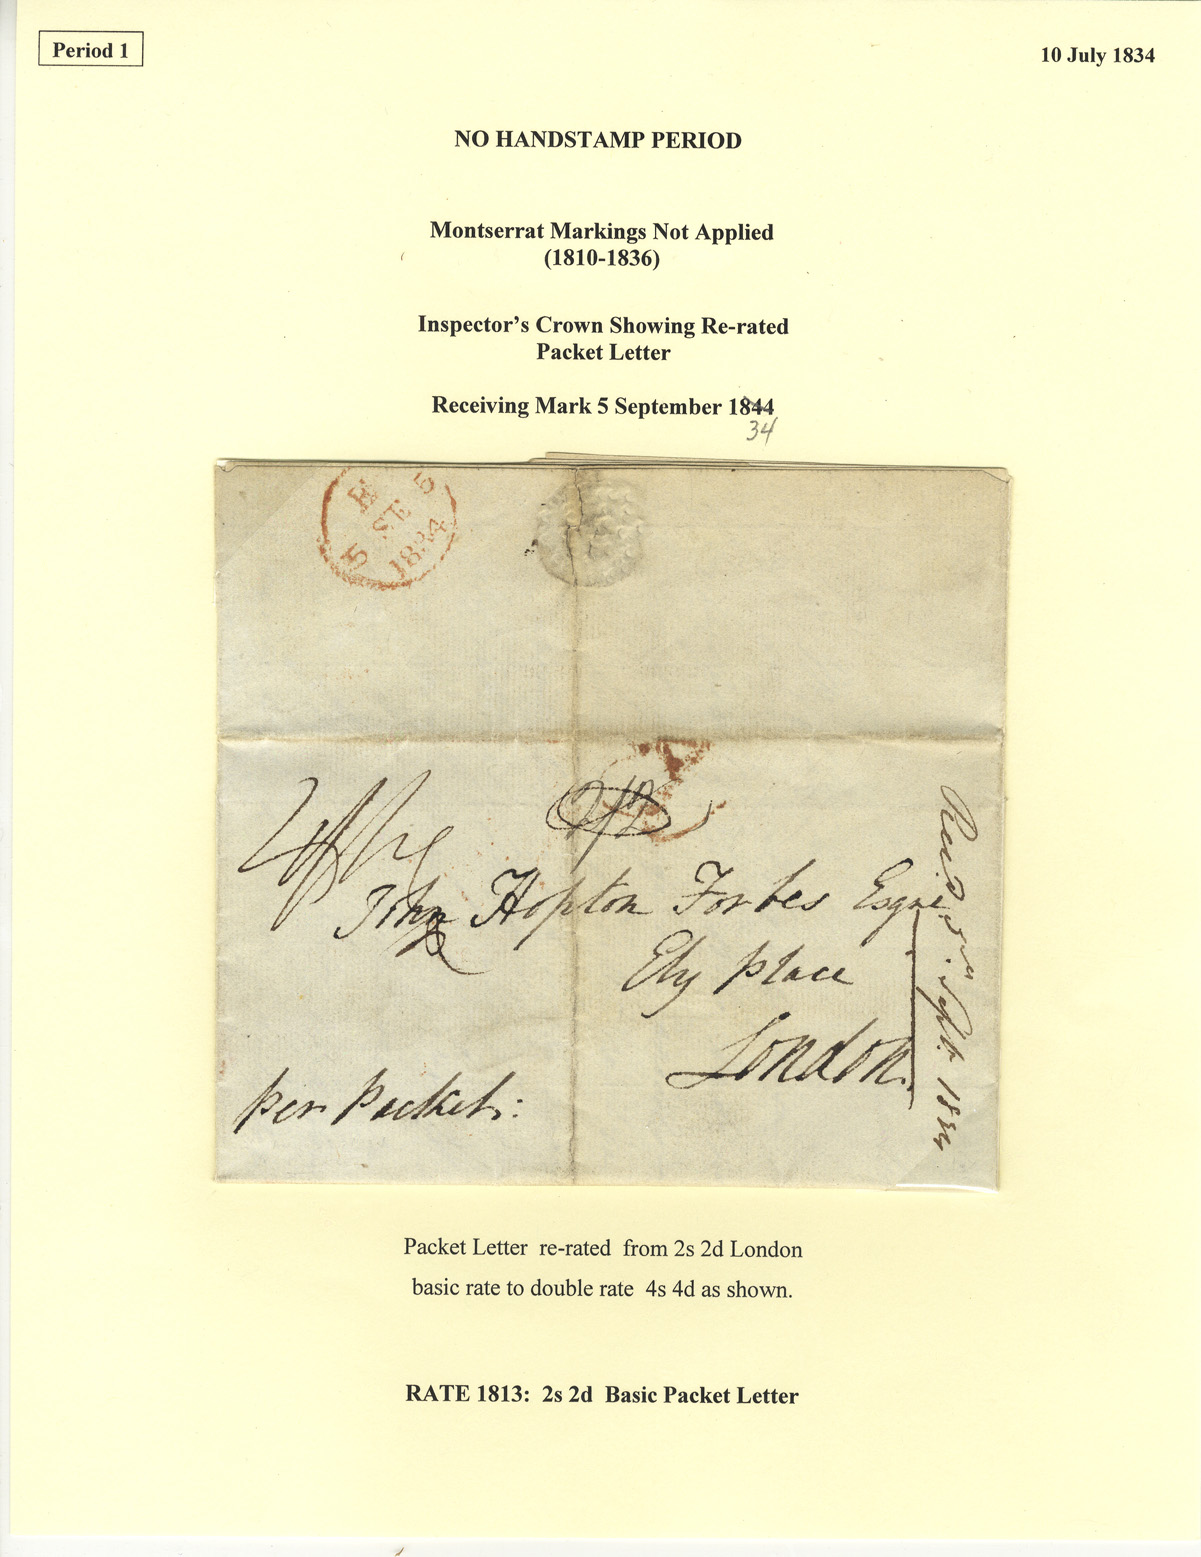 Period 1
10 July 1834
NO HANDSTAMP PERIOD
Montserrat Markings Not Applied
(1810-1836)
Inspector's Crown Showing Re-rated
Packet Letter
Receiving Mark 5 September 1844
34
5
SE
5
1834
2/2
John Hopton Forbes Esqre
Ely place
London
per Packet:
Recd 5th Septr. 1834
Packet Letter re-rated from 2s 2d London
basic rate to double rate 4s 4d as shown.
RATE 1813: 2s 2d Basic Packet Letter